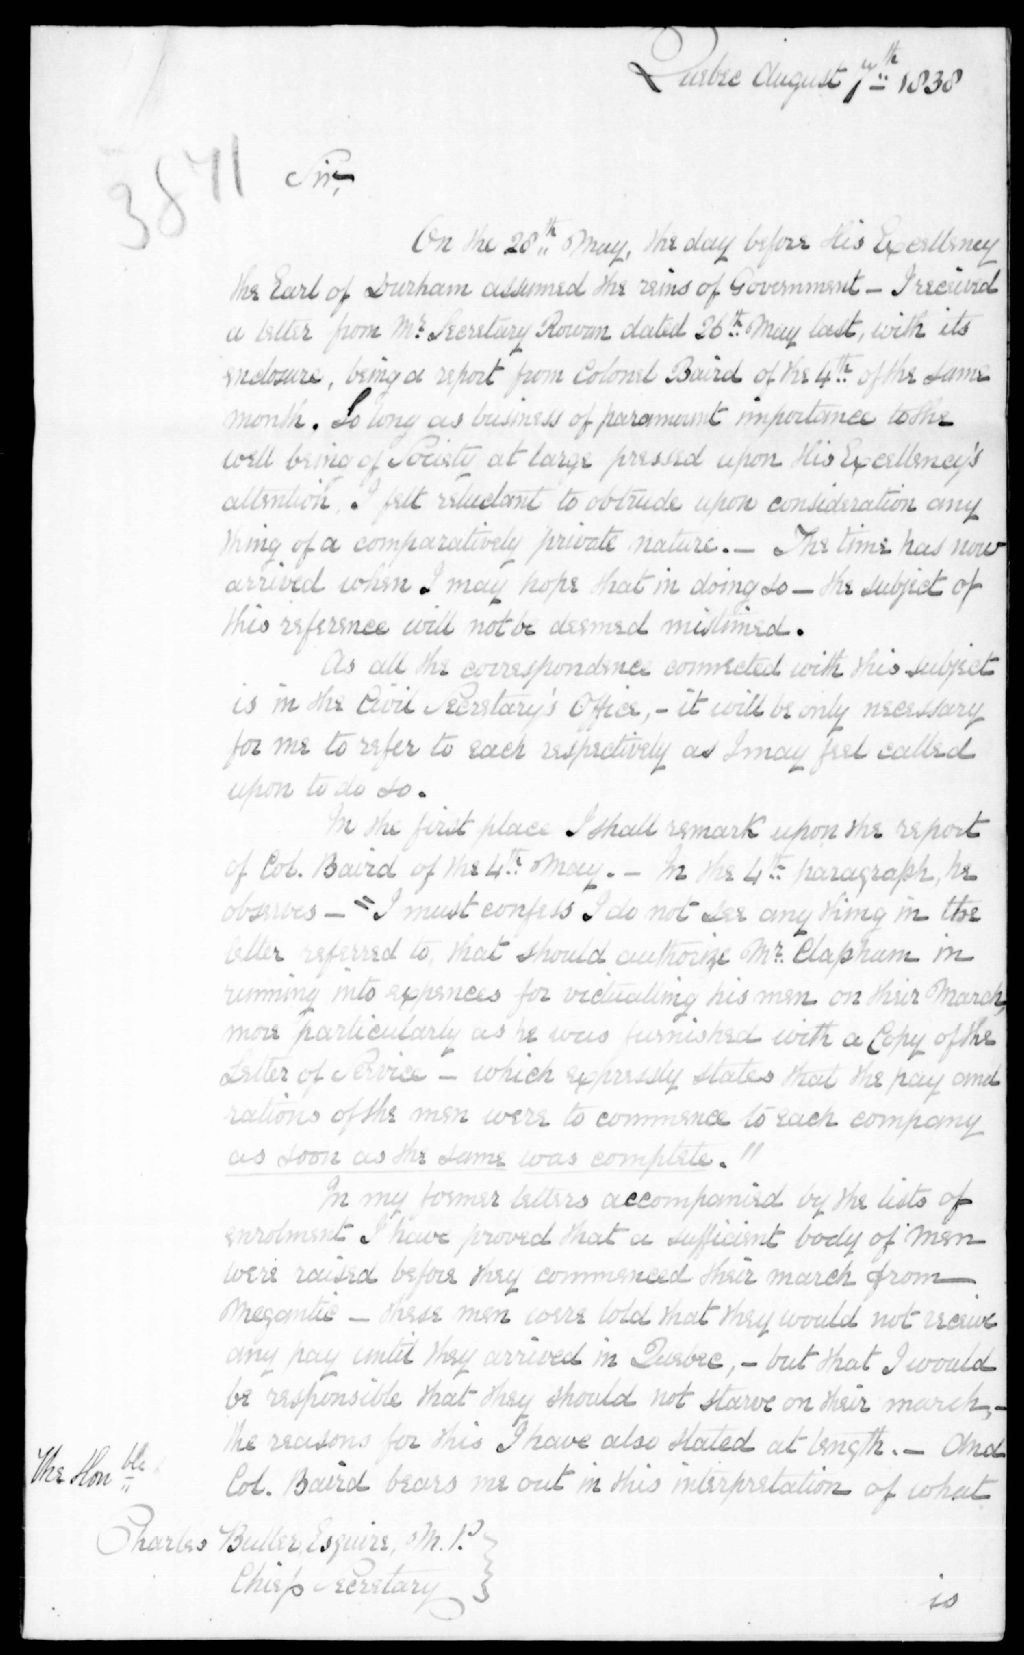 Quebec August 7th 1838
3871
Sir,
On the 28th May, the day before His Excellency
the Earl of Durham assumed the reins of Government — I received
a letter from Mr. Secretary Rowan dated 26th May last, with its
enclosure, being a report from Colonel Baird of the 4th of the same
month. So long as business of paramount importance to the
well being of Society at large pressed upon His Excellency's
attention, I felt reluctant to obtrude upon consideration any
thing of a comparatively private nature. — The time has now
arrived when I may hope that in doing so — the subject of
this reference will not be deemed mistimed.
As all the correspondence connected with this subject
is in the Civil Secretary's Office, — it will be only necessary
for me to refer to each respectively as I may feel called
upon to do so.
In the first place I shall remark upon the report
of Col. Baird of the 4th May. — In the 4th paragraph, he
observes — "I must confess I do not see any thing in the
letter referred to, that should authorize Mr. Clapham in
running into expences for victualling his men on their March,
more particularly as he was furnished with a Copy of the
Letter of Service — which expressly states that the pay and
rations of the men were to commence to each company
as soon as the same was complete."
In my former letters accompanied by the lists of
enrolment I have proved that a sufficient body of men
were raised before they commenced their march from
Megantic — these men were told that they would not receive
any pay until they arrived in Quebec, — but that I would
be responsible that they should not starve on their march, —
the reasons for this I have also stated at length. — And
Col. Baird bears me out in this interpretation of what
The Honble
Charles Buller, Esquire, M.P.
Chief Secretary
is